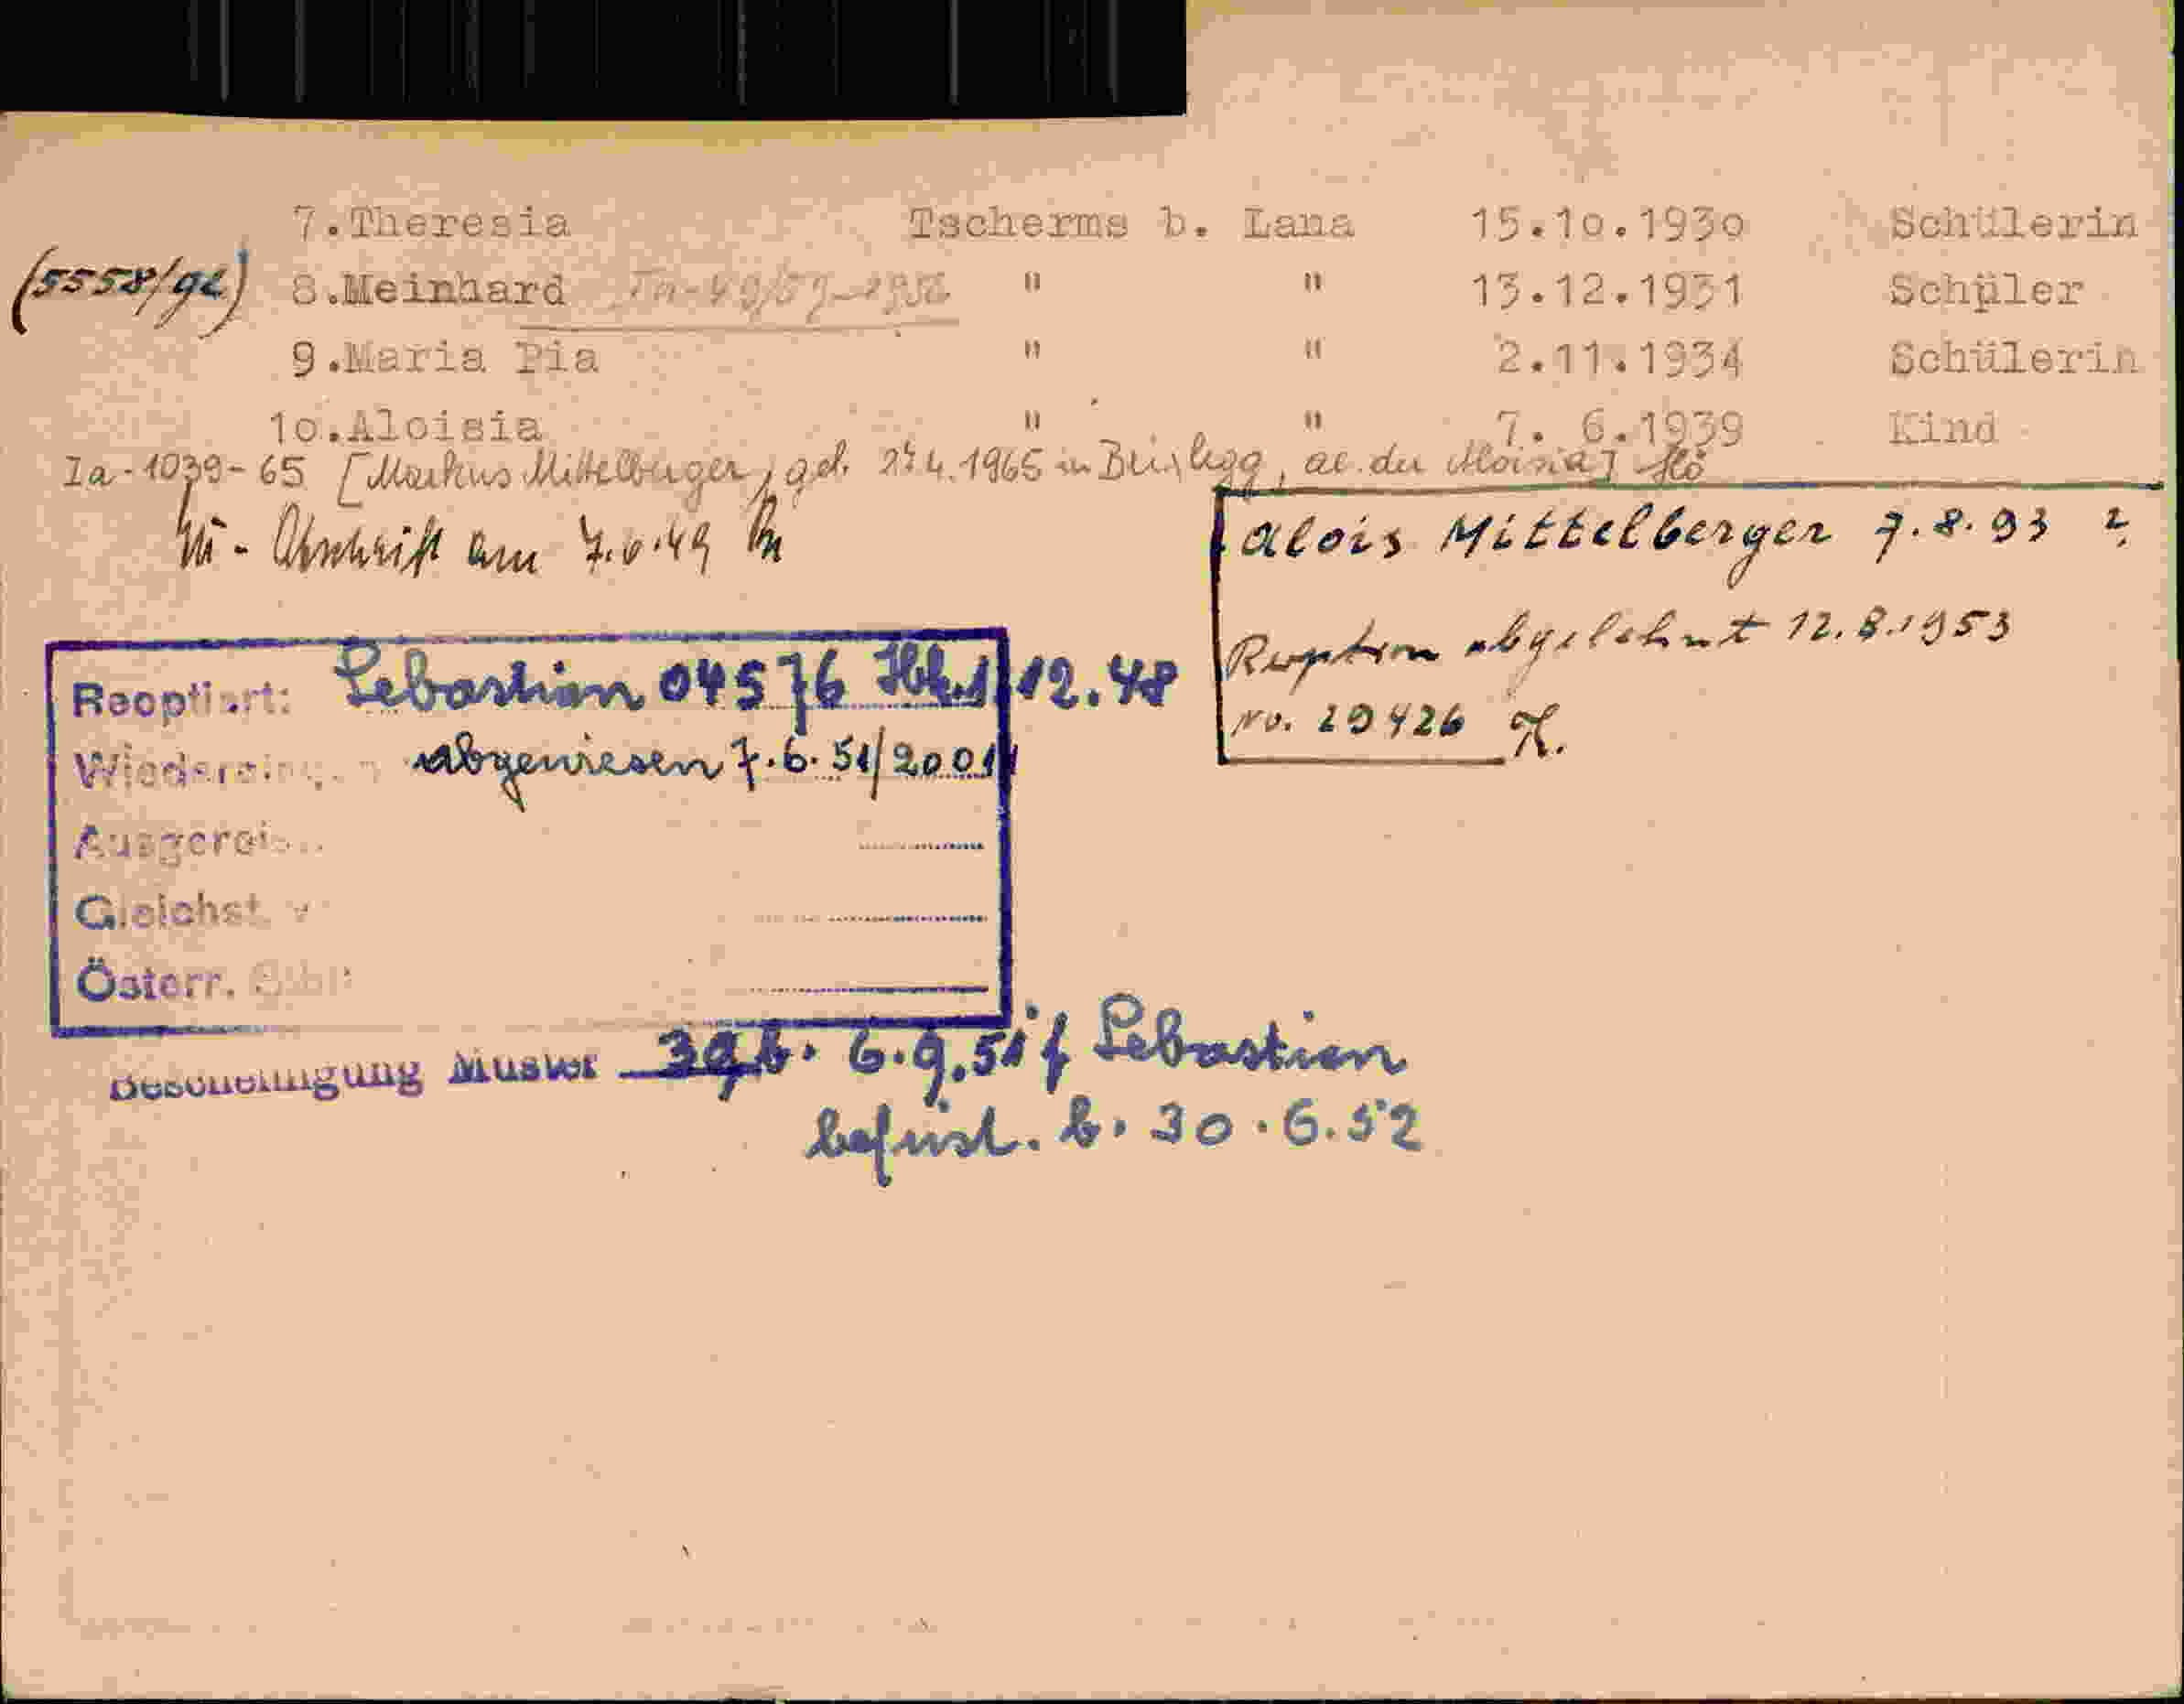 7.Theresia Tscherms b. Lana 15.10.1930 Schülerin
(5558/gl) 8.Meinhard " " 13.12.1931 Schüler
9.Maria Pia " " 2.11.1934 Schülerin
10.Aloisia " " 7. 6.1939 Kind
Ia-1039-65 [Markus Mittelberger, geb. 4.1965 in Brixlegg, ae. der Aloisia]
Abschrift am 7.6.49
Alois Mittelberger 7.8.93
Reoption abgelehnt 12.8.1953
No. 29426 H.
Reoptiert: Sebastian 04576 12.48
abgewiesen 7.6.51/2001
Ausgereis
Gleichst. v
Österr.
Bescheinigung Muster 6.9.51 f Sebastian
befrist. b. 30.6.52